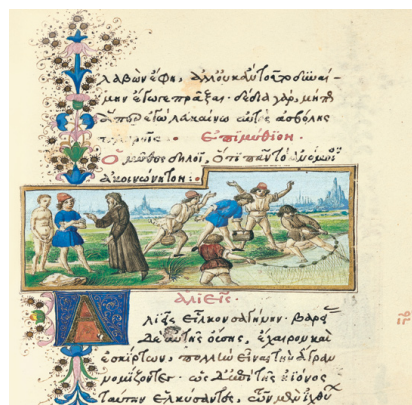 λαβὼν ἔφη, ἀλλ' οὐκ ἂν τοῦτο δυναί-
μην ἔγωγε πρᾶξαι· δέδια γὰρ, μή πως
ἅπερ ἐγὼ λευκαίνω αὐτὸς ἀσβόλης
Ἐπιμύθιον·
Ὁ μῦθος δηλοῖ, ὅτι πᾶν τὸ ἀνόμοιον
ἀκοινώνητον:
ἁλιεῖς·
Ἁλιεῖς εἷλκον σαγήνην· βαρείας
δὲ αὐτῆς οὔσης, ἔχαιρον καὶ
ἐσκίρτων, πολλὴν εἶναι τὴν ἄγραν
νομίζοντες· ὡς δὲ ἐπὶ τῆς ἠϊόνος
ταύτην εἱλκύσαντες, τῶν μὲν ἰχθύ